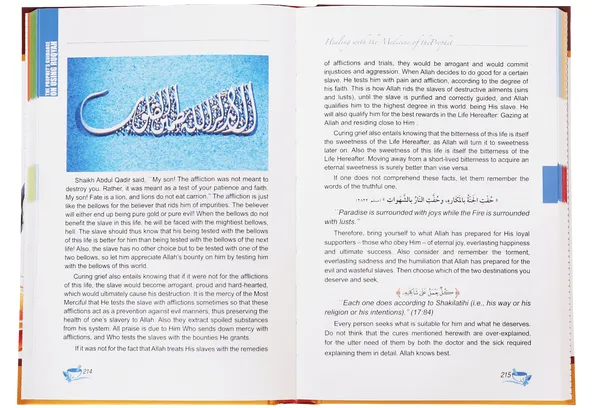 THE PROPHET'S GUIDANCE
ON USING RUQYAH
Shaikh Abdul Qadir said, ``My son! The affliction was not meant to
destroy you. Rather, it was meant as a test of your patience and faith,
My son! Fate is a lion, and lions do not eat carrion.'' The affliction is just
like the bellows for the believer that rids him of impurities. The believer
will either end up being pure gold or pure evil! When the bellows do not
benefit the slave in this life, he will be faced with the mightiest bellows,
hell. The slave should thus know that his being tested with the bellows
of this life is better for him than being tested with the bellows of the next
life! Also, the slave has no other choice but to be tested with one of the
two bellows, so let him appreciate Allah's bounty on him by testing him
with the bellows of this world.
Curing grief also entails knowing that if it were not for the afflictions
of this life, the slave would become arrogant, proud and hard-hearted,
which would ultimately cause his destruction. It is the mercy of the Most
Merciful that He tests the slave with afflictions sometimes so that these
afflictions act as a prevention against evil manners, thus preserving the
health of one's slavery to Allah. Also they extract spoiled substances
from his system. All praise is due to Him Who sends down mercy with
afflictions, and Who tests the slaves with the bounties He grants.
If it was not for the fact that Allah treats His slaves with the remedies
214
Healing with the Medicine of the Prophet
of afflictions and trials, they would be arrogant and would commit
injustices and aggression. When Allah decides to do good for a certain
slave, He tests him with pain and affliction, according to the degree of
his faith. This is how Allah rids the slaves of destructive ailments (sins
and lusts), until the slave is purified and correctly guided, and Allah
qualifies him to the highest degree in this world, being His slave. He
will also qualify him for the best rewards in the Life Hereafter: Gazing at
Allah and residing close to Him .
Curing grief also entails knowing that the bitterness of this life is itself
the sweetness of the Life Hereafter, as Allah will turn it to sweetness
later on. Also the sweetness of this life is itself the bitterness of the
Life Hereafter. Moving away from a short-lived bitterness to acquire an
eternal sweetness is surely better than vise versa.
If one does not comprehend these facts, let them remember the
words of the truthful one.
حُفَّتِ الْجَنَّةُ بِالْمَكَارِهِ، وَحُفَّتِ النَّارُ بِالشَّهَوَاتِ
``Paradise is surrounded with joys while the Fire is surrounded
with lusts.''
Therefore, bring yourself to what Allah has prepared for His loyal
supporters – those who obey Him – of eternal joy, everlasting happiness
and ultimate success. Also consider and remember the torment,
everlasting sadness and the humiliation that Allah has prepared for the
evil and wasteful slaves. Then choose which of the two destinations you
deserve and seek.
﴿ كُلٌّ يَعْمَلُ عَلَى شَاكِلَتِهِ ﴾
``Each one does according to Shakilatihi (i.e., his way or his
religion or his intentions).'' (17:84)
Every person seeks what is suitable for him and what he deserves.
Do not think that the cures mentioned herewith are over-explained,
for the utter need of them by both the doctor and the sick required
explaining them in detail. Allah knows best.
215